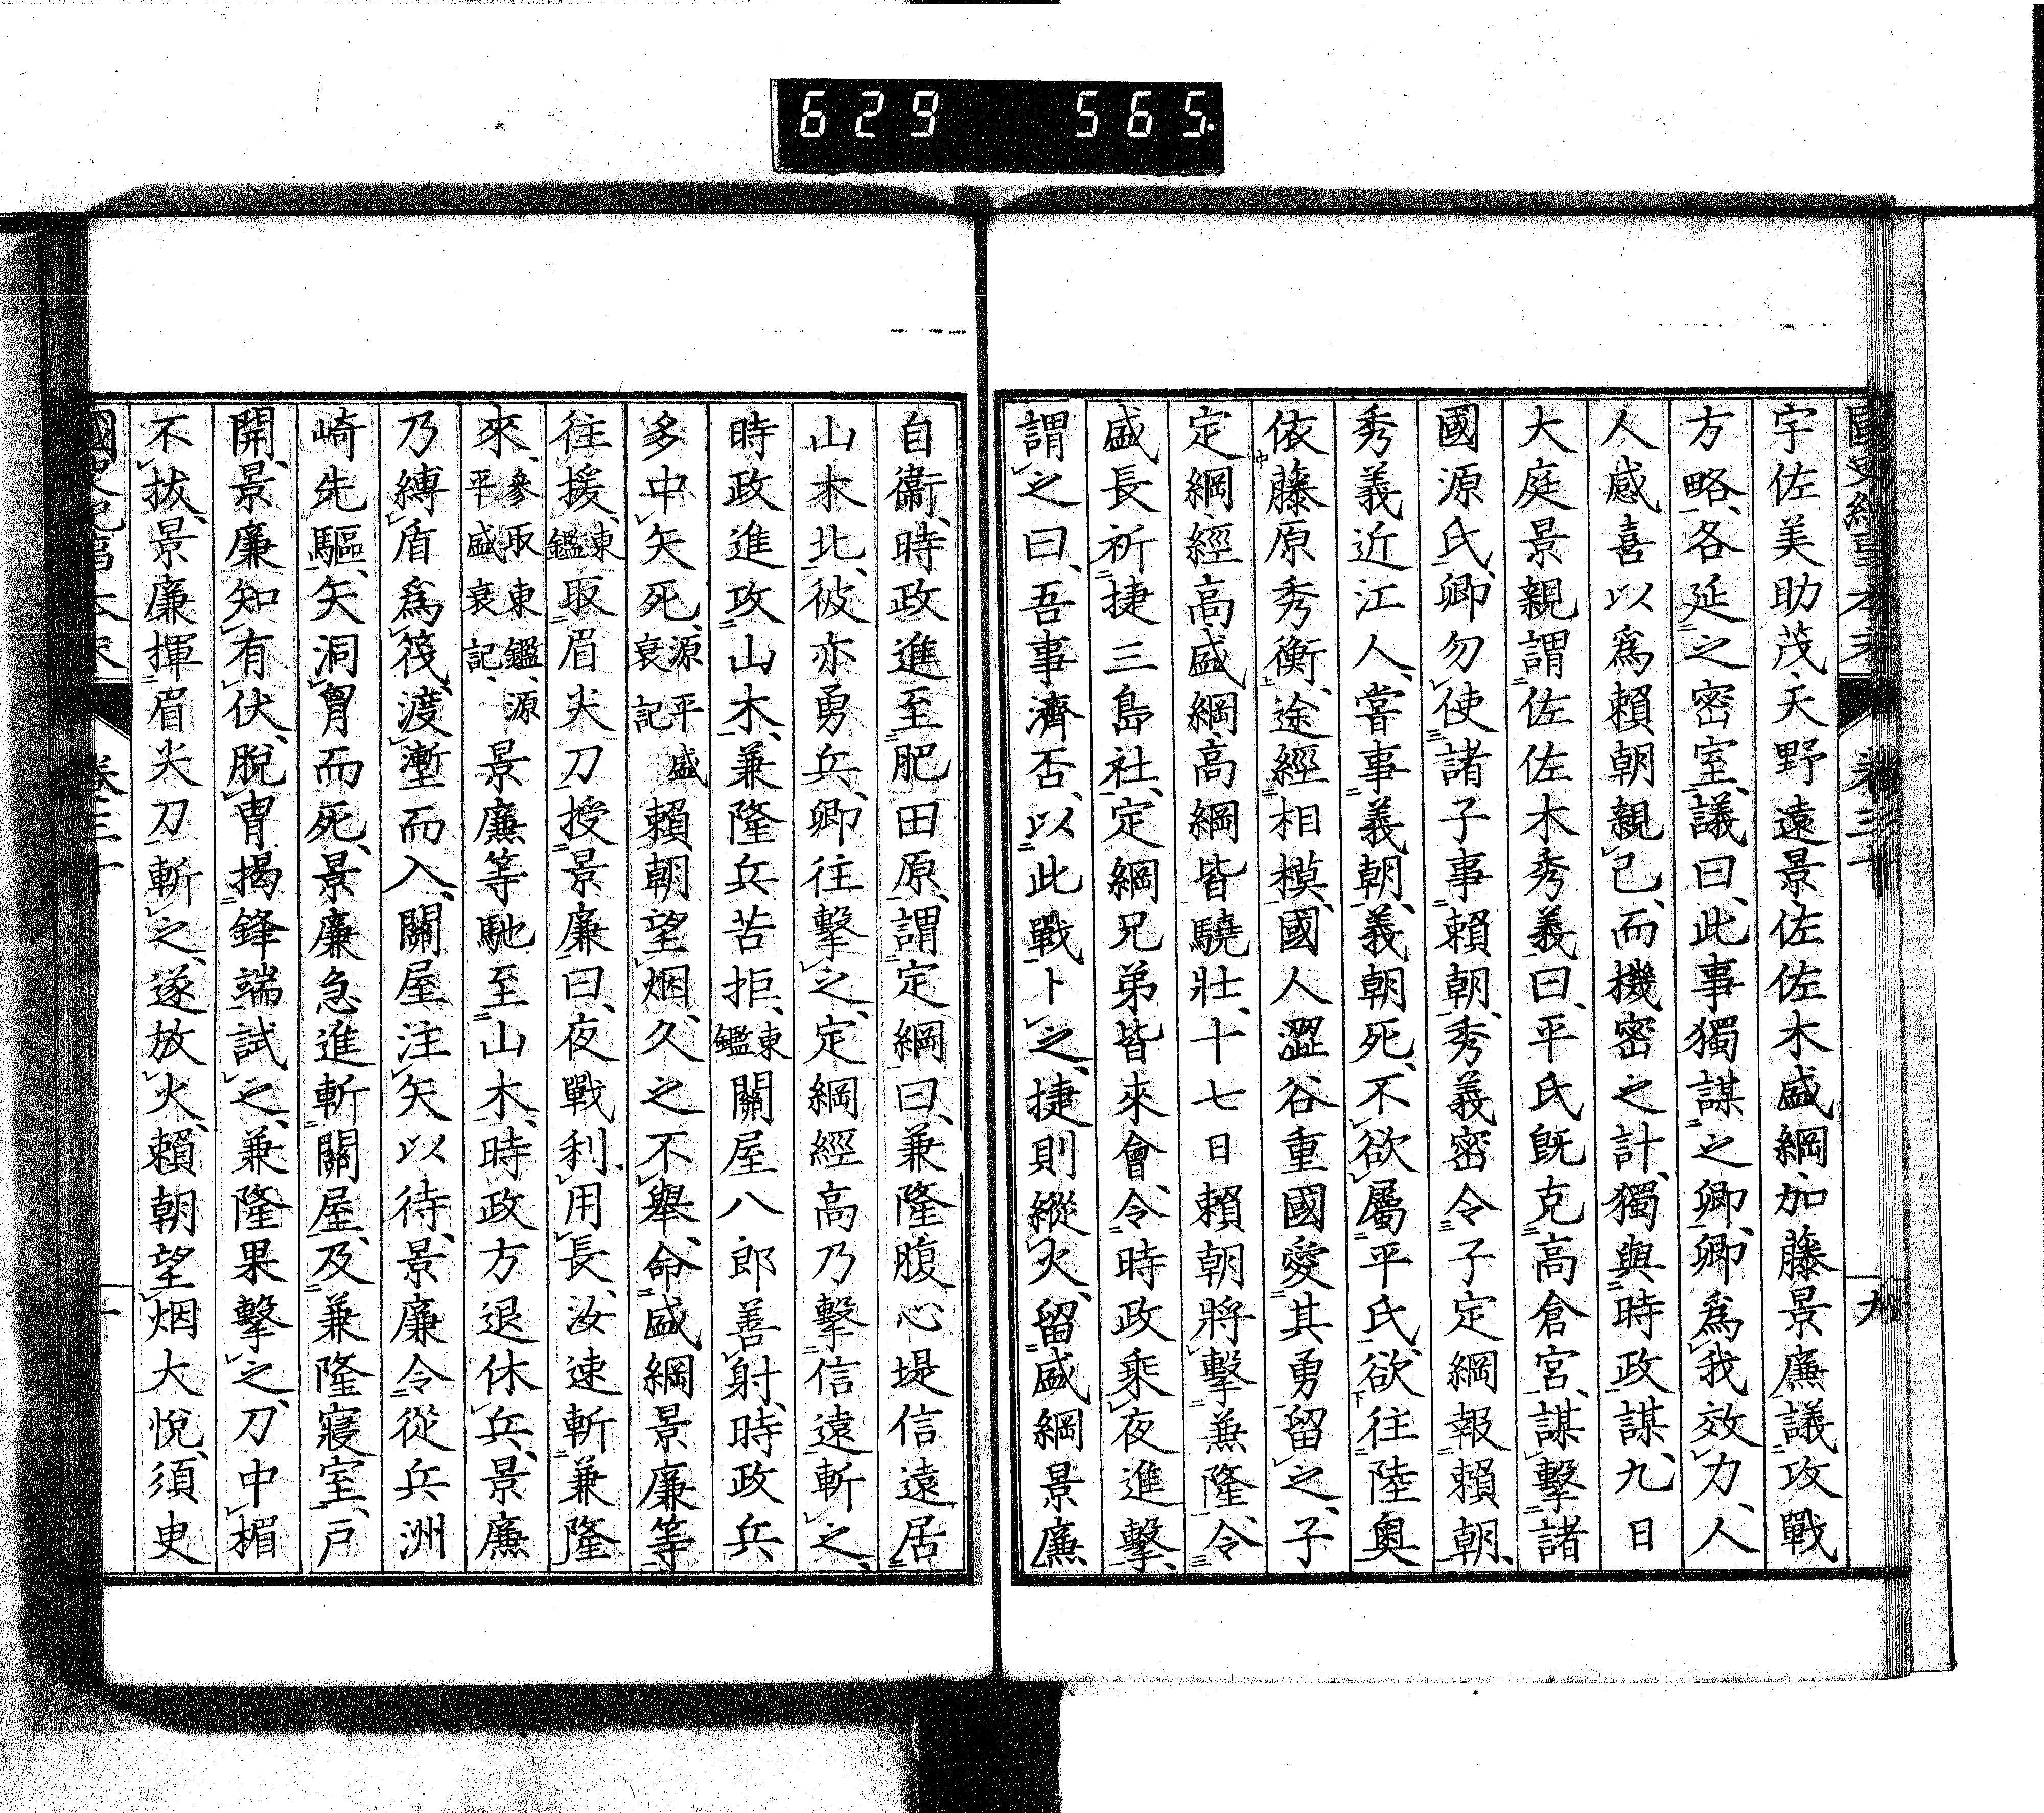 629 565.
宇佐美助茂、天野遠景、佐佐木盛綱、加藤景廉、議攻戰
方略、各延之密室、議曰、此事獨謀之卿、卿爲我效力、人
人感喜以爲賴朝親己、而機密之計、獨與時政謀、九日
大庭景親謂佐佐木秀義曰、平氏既克高倉宮、謀擊諸
國源氏、卿勿使諸子事賴朝、秀義密令子定綱報賴朝、
秀義近江人、嘗事義朝、義朝死、不欲屬平氏、欲往陸奧
依藤原秀衡、途經相模、國人澀谷重國愛其勇留之、子
定綱、經高、盛綱、高綱皆驍壯、十七日賴朝將擊兼隆、令
盛長祈捷三島社、定綱兄弟皆來會、令時政乘夜進擊、
謂之曰、吾事濟否、以此戰卜之、捷則縱火、留盛綱景廉
自衞、時政進至肥田原、謂定綱曰、兼隆腹心堤信遠居
山木北、彼亦勇兵、卿往擊之、定綱經高乃擊信遠斬之、
時政進攻山木、兼隆兵苦拒、東鑑關屋八郎善射、時政兵
多中矢死、源平盛衰記賴朝望烟、久之不舉、命盛綱景廉等
往援、東鑑取眉尖刀授景廉曰、夜戰利用長、汝速斬兼隆
來、參取東鑑、源平盛衰記、景廉等馳至山木、時政方退休兵、景廉
乃縛盾爲筏、渡塹而入、關屋注矢以待、景廉令從兵洲
崎先驅、矢洞胷而死、景廉急進斬關屋、及兼隆寢室、戶
開、景廉知有伏、脫冑揭鋒端試之、兼隆果擊之、刀中楣
不拔、景廉揮眉尖刀斬之、遂放火、賴朝望烟大悅、須臾